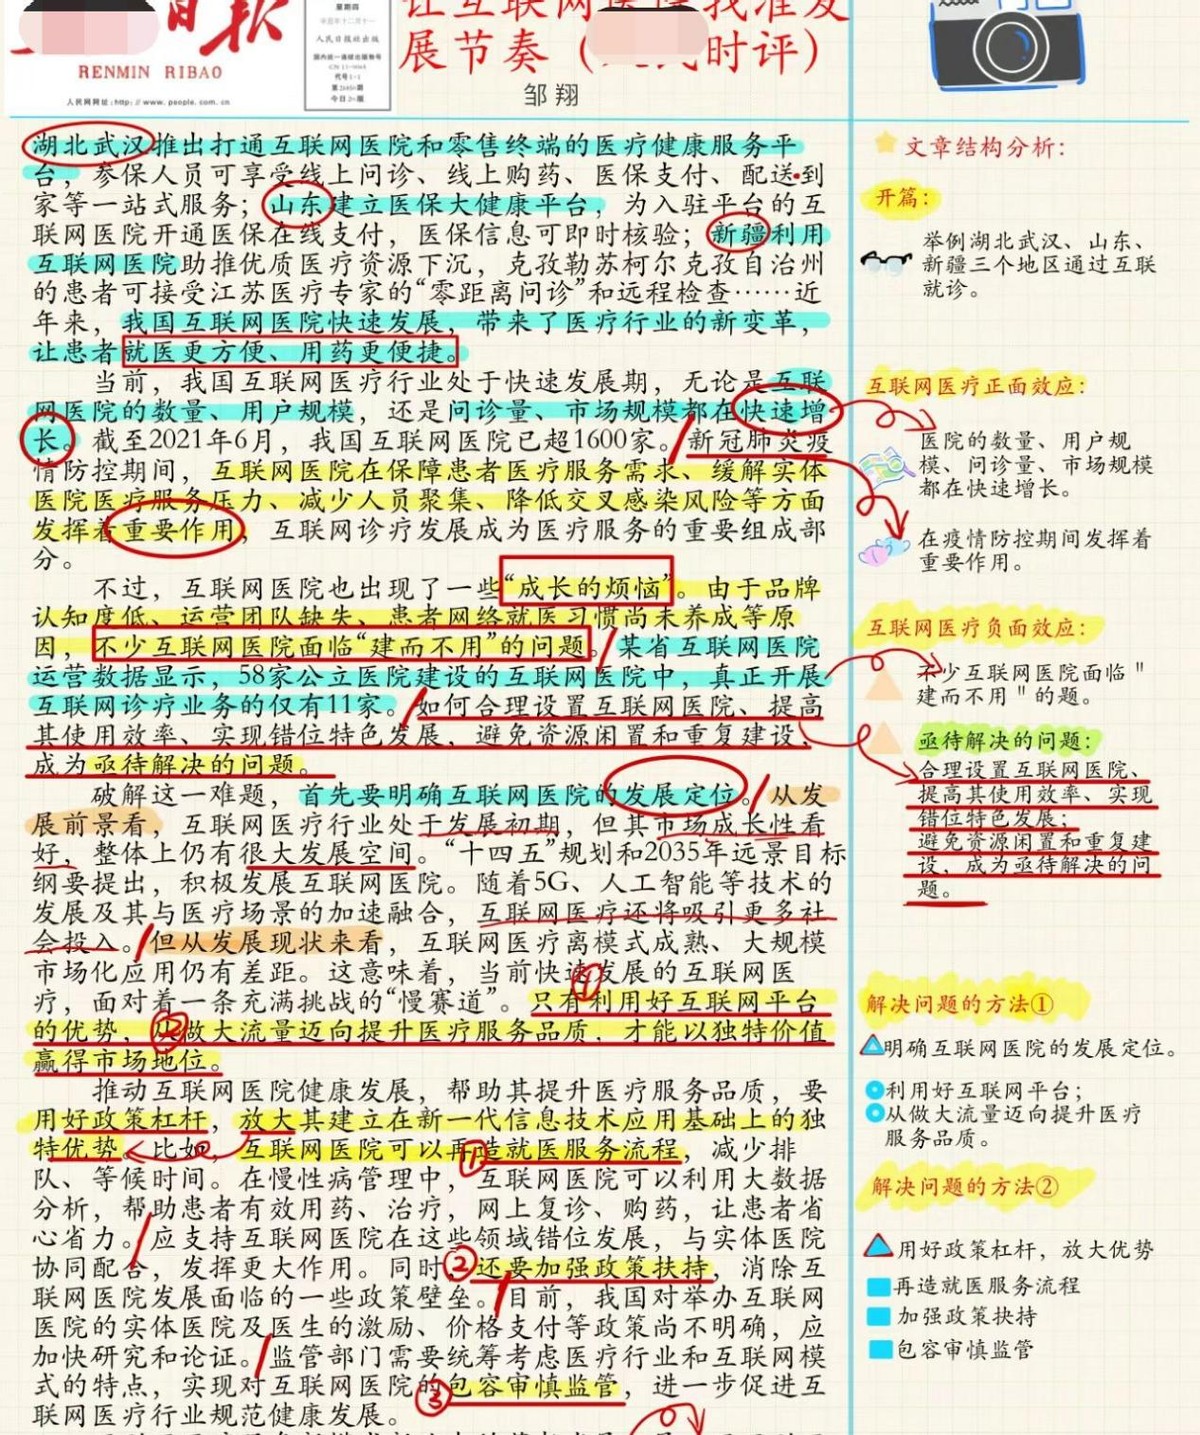 日报
RENMIN RIBAO
人民网网址:http://www.people.com.cn
星期四
人民日报社出版
国内统一连续出版物号
代号1-1
今日20版
让互联网医院找准发
展节奏（时评）
邹翔
湖北武汉推出打通互联网医院和零售终端的医疗健康服务平
台，参保人员可享受线上问诊、线上购药、医保支付、配送到
家等一站式服务；山东建立医保大健康平台，为入驻平台的互
联网医院开通医保在线支付，医保信息可即时核验；新疆利用
互联网医院助推优质医疗资源下沉，克孜勒苏柯尔克孜自治州
的患者可接受江苏医疗专家的“零距离问诊”和远程检查……近
年来，我国互联网医院快速发展，带来了医疗行业的新变革，
让患者就医更方便、用药更便捷。
当前，我国互联网医疗行业处于快速发展期，无论是互联
网医院的数量、用户规模，还是问诊量、市场规模都在快速增
长。截至2021年6月，我国互联网医院已超1600家。新冠肺炎疫
情防控期间，互联网医院在保障患者医疗服务需求、缓解实体
医院医疗服务压力、减少人员聚集、降低交叉感染风险等方面
发挥着重要作用，互联网诊疗发展成为医疗服务的重要组成部
分。
不过，互联网医院也出现了一些“成长的烦恼”。由于品牌
认知度低、运营团队缺失、患者网络就医习惯尚未养成等原
因，不少互联网医院面临“建而不用”的问题。某省互联网医院
运营数据显示，58家公立医院建设的互联网医院中，真正开展
互联网诊疗业务的仅有11家。如何合理设置互联网医院、提高
其使用效率、实现错位特色发展，避免资源闲置和重复建设，
成为亟待解决的问题。
破解这一难题，首先要明确互联网医院的发展定位。从发
展前景看，互联网医疗行业处于发展初期，但其市场成长性看
好，整体上仍有很大发展空间。“十四五”规划和2035年远景目标
纲要提出，积极发展互联网医院。随着5G、人工智能等技术的
发展及其与医疗场景的加速融合，互联网医疗还将吸引更多社
会投入。但从发展现状来看，互联网医疗离模式成熟、大规模
市场化应用仍有差距。这意味着，当前快速发展的互联网医
疗，面对着一条充满挑战的“慢赛道”。只有利用好互联网平台
的优势，从做大流量迈向提升医疗服务品质，才能以独特价值
赢得市场地位。
推动互联网医院健康发展，帮助其提升医疗服务品质，要
用好政策杠杆，放大其建立在新一代信息技术应用基础上的独
特优势。比如，互联网医院可以再造就医服务流程，减少排
队、等候时间。在慢性病管理中，互联网医院可以利用大数据
分析，帮助患者有效用药、治疗，网上复诊、购药，让患者省
心省力。应支持互联网医院在这些领域错位发展，与实体医院
协同配合，发挥更大作用。同时，②还要加强政策扶持，消除互
联网医院发展面临的一些政策壁垒。目前，我国对举办互联网
医院的实体医院及医生的激励、价格支付等政策尚不明确，应
加快研究和论证。监管部门需要统筹考虑医疗行业和互联网模
式的特点，实现对互联网医院的③包容审慎监管，进一步促进互
联网医疗行业规范健康发展。
文章结构分析：
开篇：
举例湖北武汉、山东、
新疆三个地区通过互联
就诊。
互联网医疗正面效应：
医院的数量、用户规
模、问诊量、市场规模
都在快速增长。
在疫情防控期间发挥着
重要作用。
互联网医疗负面效应：
不少互联网医院面临"
建而不用"的题。
亟待解决的问题：
合理设置互联网医院、
提高其使用效率、实现
错位特色发展；
避免资源闲置和重复建
设，成为亟待解决的问
题。
解决问题的方法①
明确互联网医院的发展定位。
利用好互联网平台；
从做大流量迈向提升医疗
服务品质。
解决问题的方法②
用好政策杠杆，放大优势
再造就医服务流程
加强政策抉持
包容审慎监管